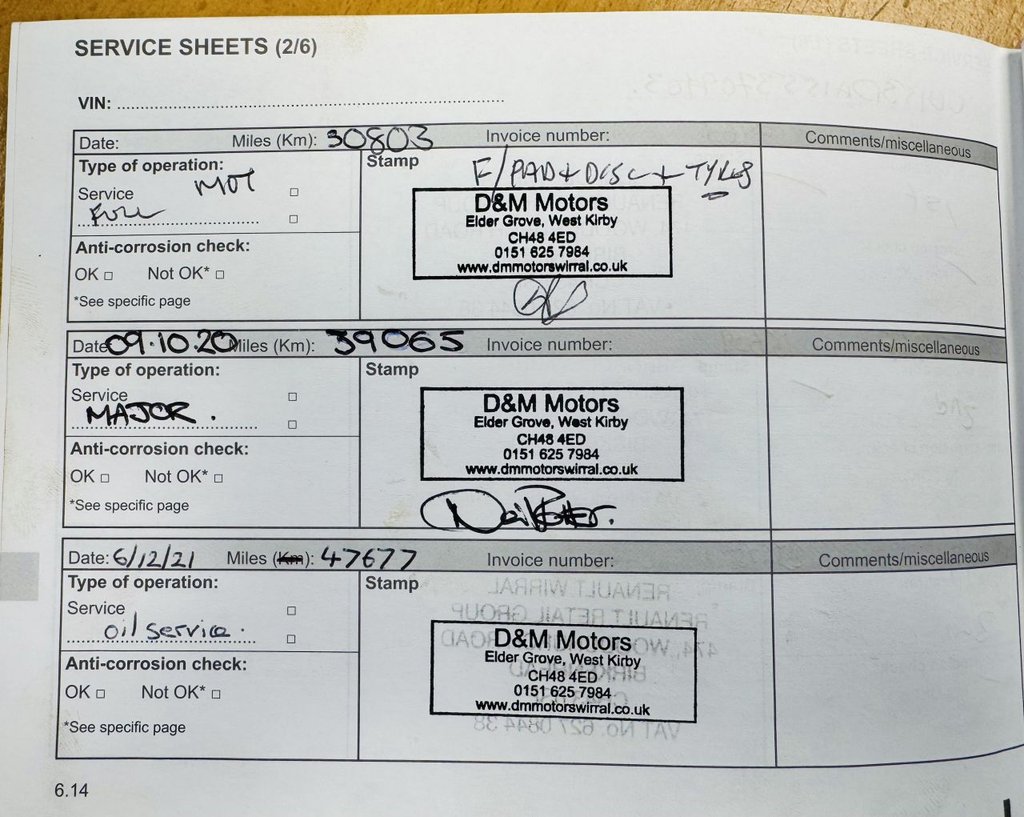 SERVICE SHEETS (2/6)
VIN:
Date: Miles (Km): 30803 Invoice number: Comments/miscellaneous
Type of operation:
Service MOT
FULL
Anti-corrosion check:
OK Not OK*
*See specific page
Stamp
F/PAD + DISC + TYRES
D&M Motors
Elder Grove, West Kirby
CH48 4ED
0151 625 7984
www.dmmotorswirral.co.uk
Date 09.10.20 Miles (Km): 39065 Invoice number: Comments/miscellaneous
Type of operation:
Service
MAJOR.
Anti-corrosion check:
OK Not OK*
*See specific page
Stamp
D&M Motors
Elder Grove, West Kirby
CH48 4ED
0151 625 7984
www.dmmotorswirral.co.uk
Date: 6/12/21 Miles (Km): 47677 Invoice number: Comments/miscellaneous
Type of operation:
Service
oil service.
Anti-corrosion check:
OK Not OK*
*See specific page
Stamp
D&M Motors
Elder Grove, West Kirby
CH48 4ED
0151 625 7984
www.dmmotorswirral.co.uk
6.14